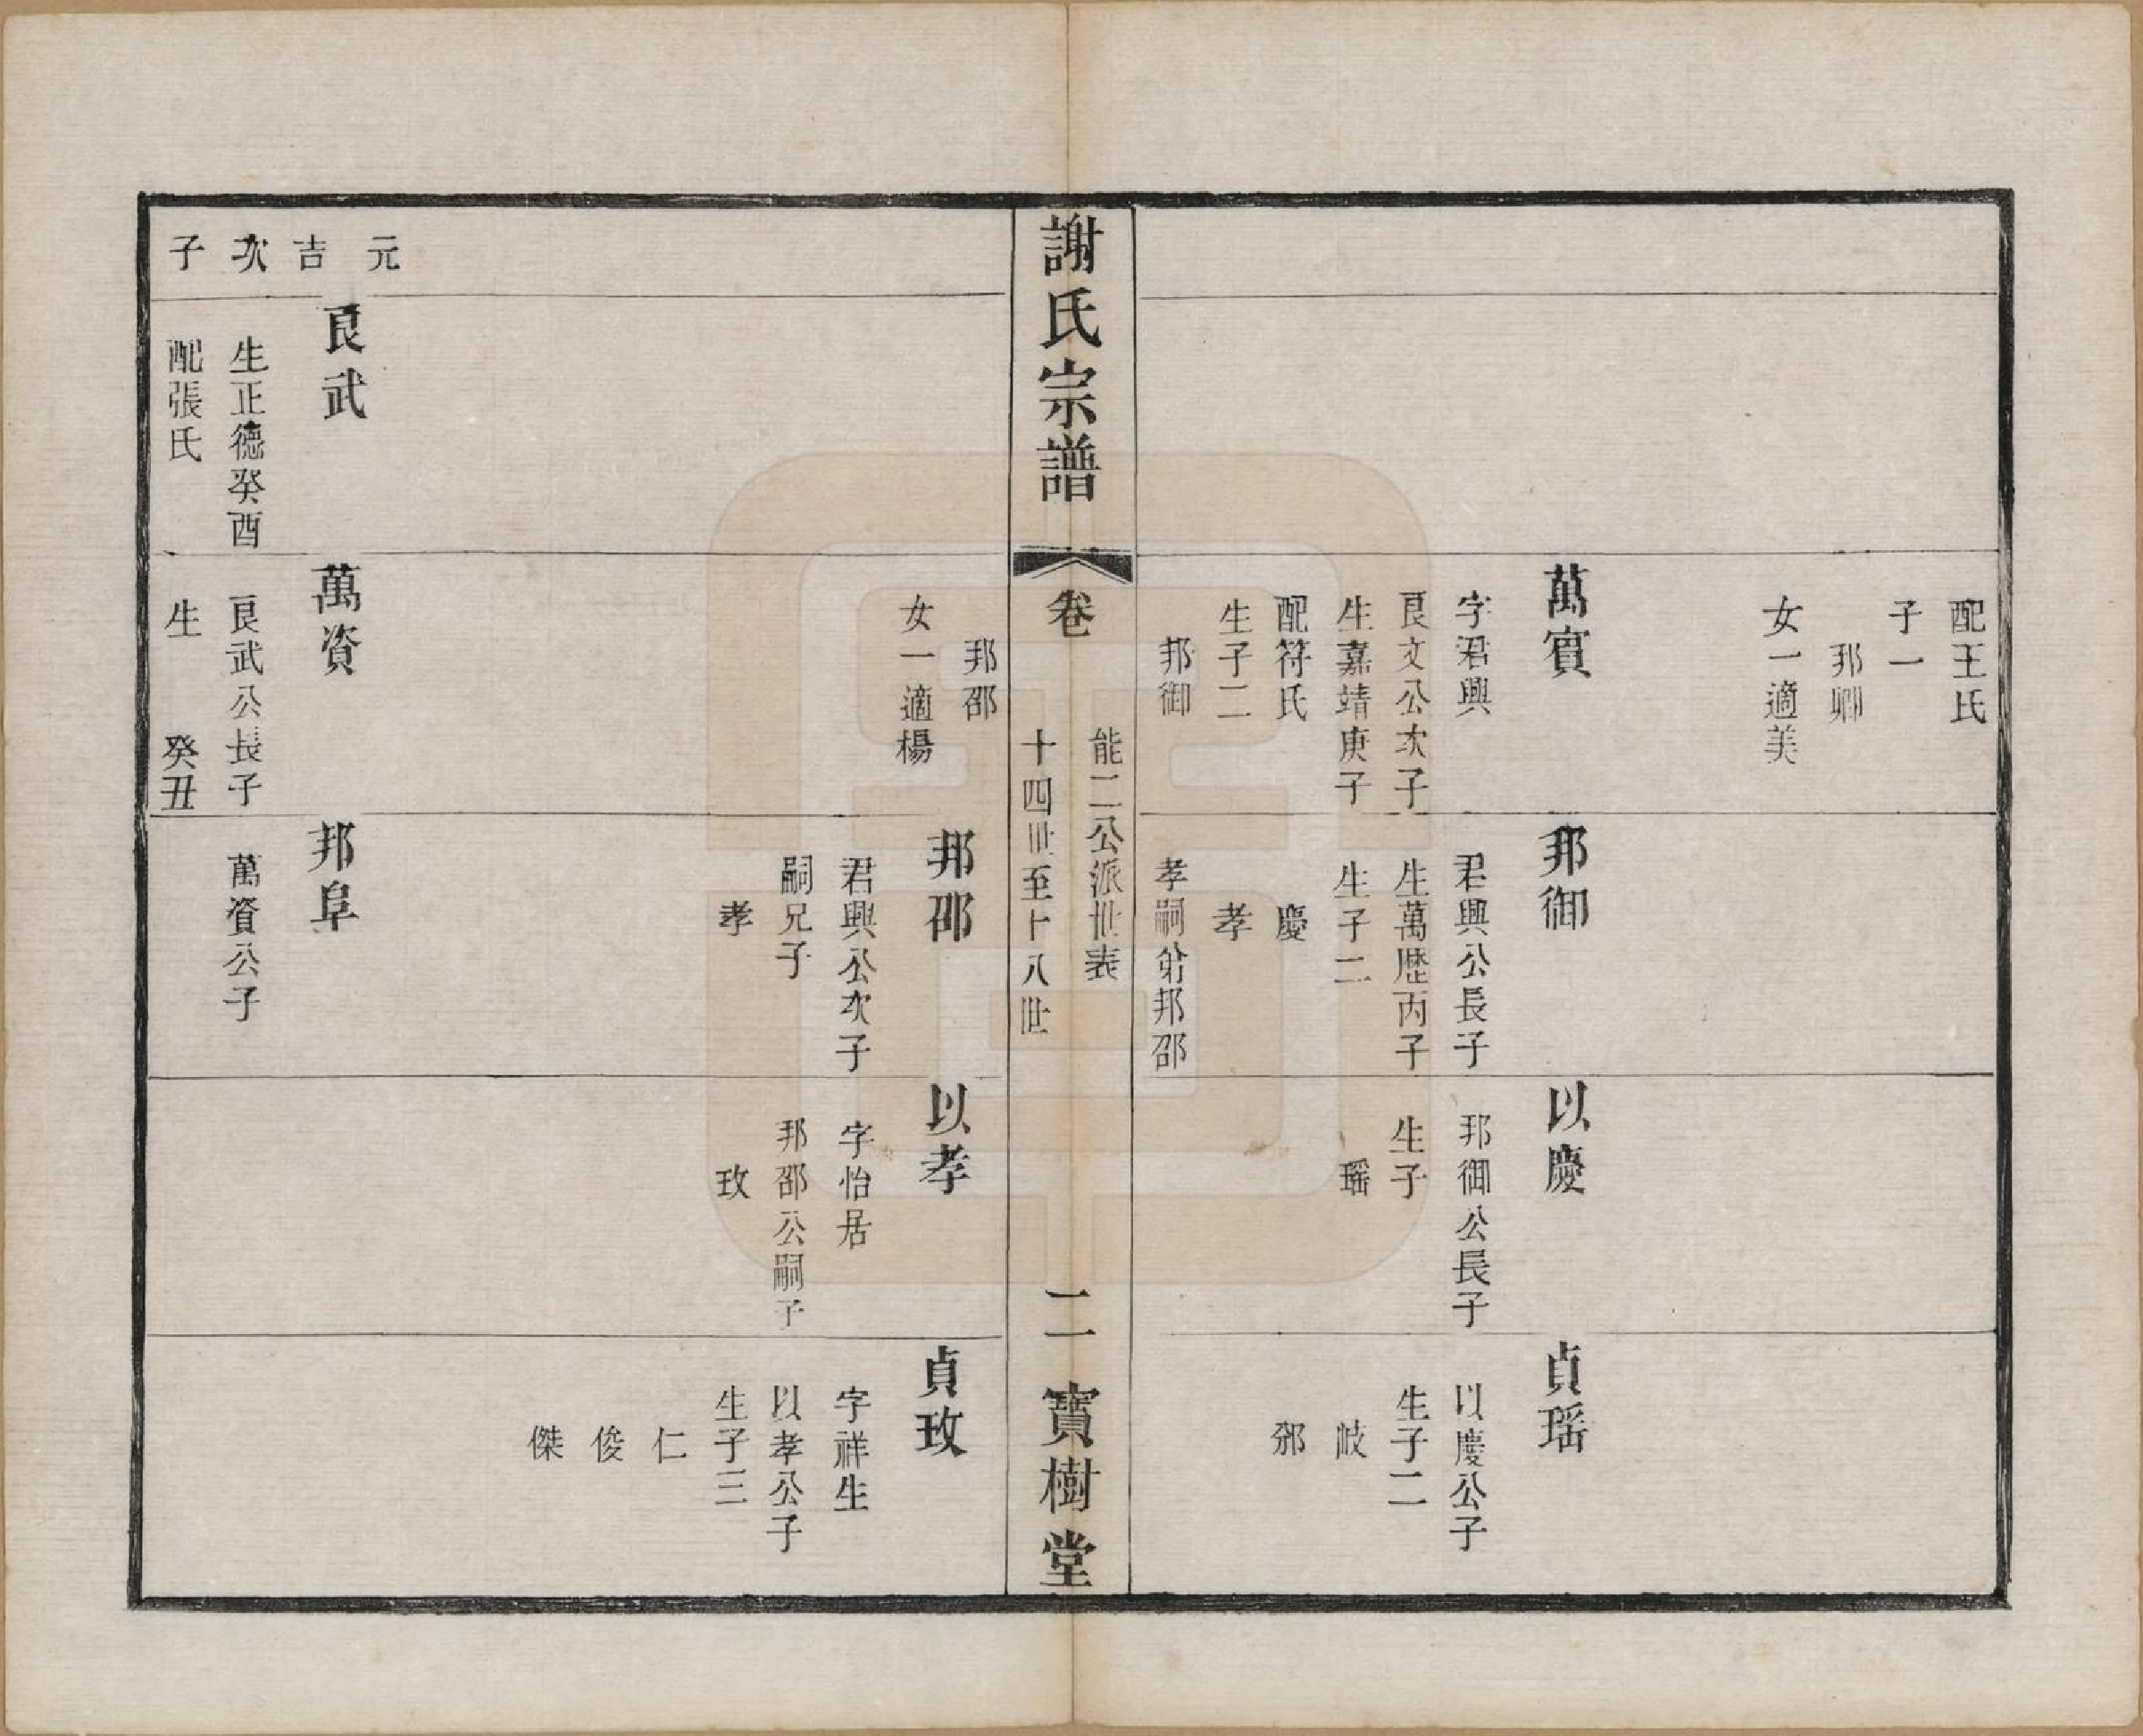 配王氏
子一
邦卿
女一適美
萬賓
字君興
良文公次子
生嘉靖庚子
配符氏
生子二
邦御
邦御
君興公長子
生萬歷丙子
生子二
慶
孝
孝嗣弟邦邵
以慶
邦御公長子
生子
瑶
貞瑶
以慶公子
生子二
岐
邠
謝氏宗譜
卷
能二公派世表
十四世至十八世
二
寶樹堂
邦邵
女一適楊
邦邵
君興公次子
嗣兄子
孝
以孝
字怡居
邦邵公嗣子
玫
貞玫
字祥生
以孝公子
生子三
仁
俊
傑
元
吉
次
子
良武
生正德癸酉
配張氏
萬資
良武公長子
生 癸丑
邦阜
萬資公子